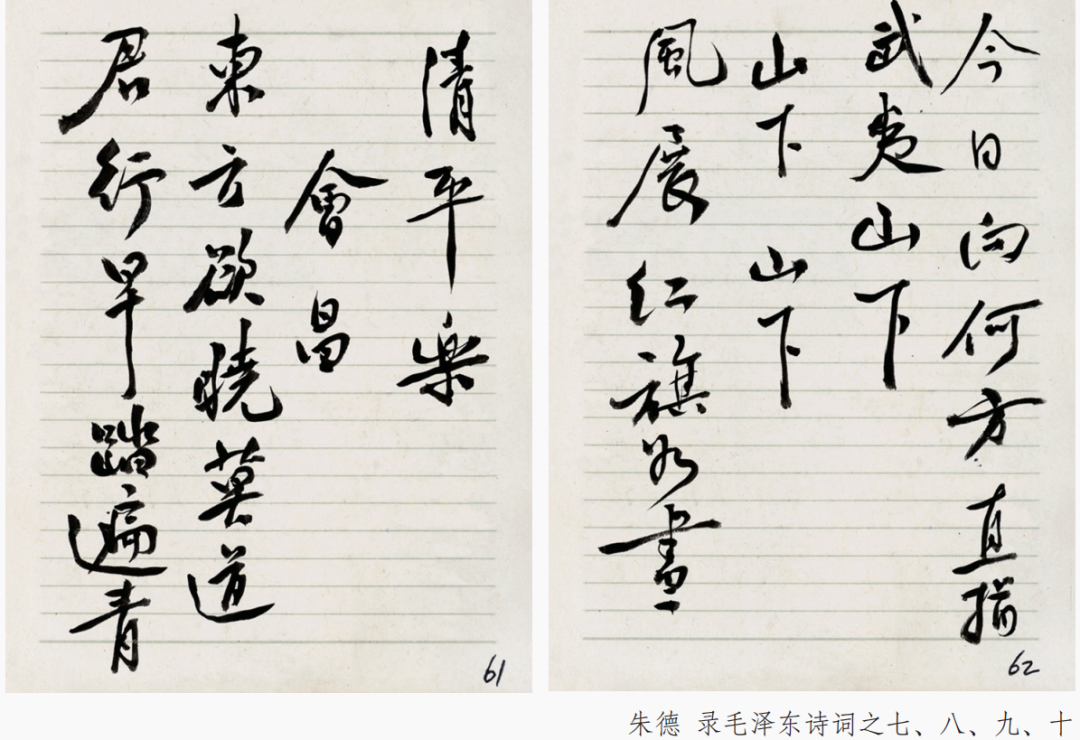 清平樂
會昌
東方欲曉莫道
君行早踏遍青
61
今日向何方直指
武夷山下
山下山下
風展红旗如畫
62
朱德 录毛泽东诗词之七、八、九、十